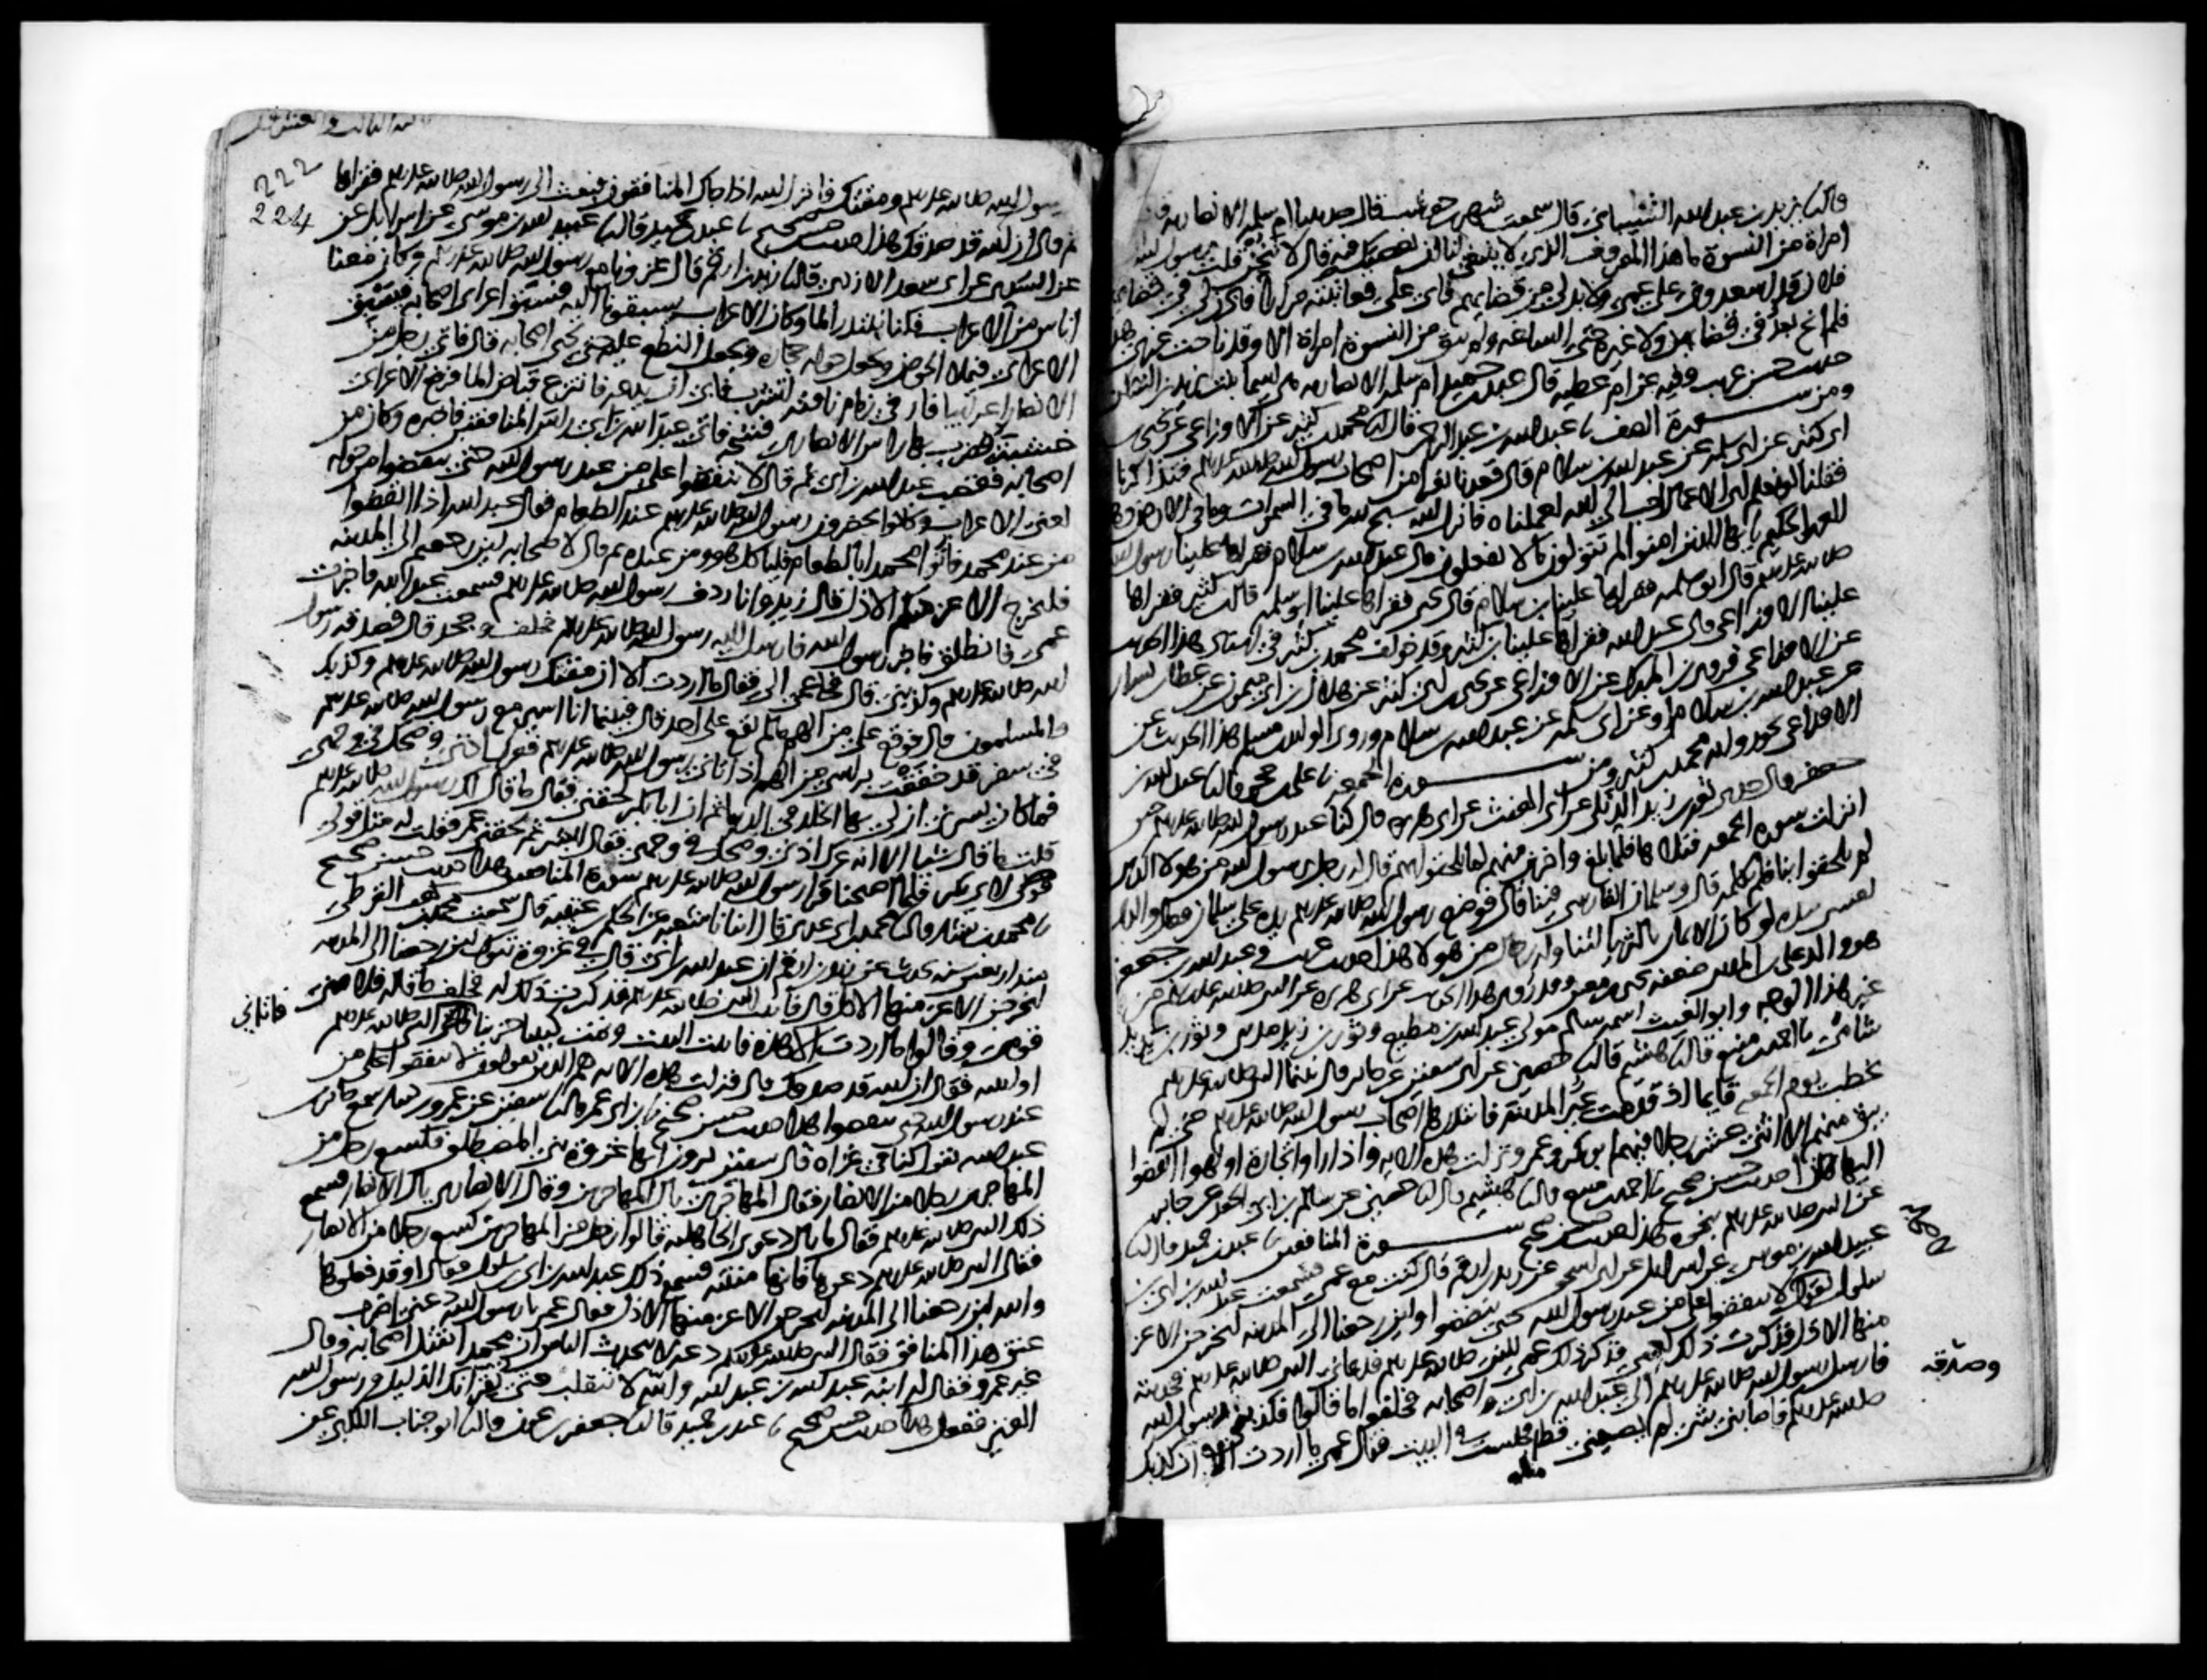 قال نا يزيد بن عبد الله الشيباني قال سمعت شهر بن حوشب قال حدثتنا ام سلمه الانصاريه قالت
امراة من النسوة ما هذا المعروف الذي لا ينبغي لنا ان نعصيك فيه قال لا تنحن قلت يرسول الله
فلان قد اسعدوني على عمي ولا بد لي من قضايهم فابى علي فعاتبته مرارا فاذن لي في قضايهن
فلم انح بعد في قضايهن ولا غيره حتى الساعه ولم يبق من النسوة امراة الا وقد ناحت غيري هذا
حديث حسن غريب وفيه عن ام عطيه قال عبد بن حميد ام سلمه الانصاريه هي اسما بنت يزيد بن السكن
ومن سورة الصف نا عبد الله بن عبد الرحمن قال نا محمد بن كثير عن الاوزاعي عن يحيى بن
ابي كثير عن ابي سلمه عن عبد الله بن سلام قال قعدنا نفر من اصحاب رسول الله صلى الله عليه وسلم فتذاكرنا
فقلنا لو نعلم اي الاعمال احب الى الله لعملناه فانزل الله سبح لله ما في السموات وما في الارض وهو
العزيز الحكيم يا ايها الذين امنوا لم تقولون ما لا تفعلون قال عبد الله بن سلام فقراها علينا رسول الله
صلى الله عليه وسلم قال ابو سلمه فقراها علينا بن سلام قال يحيى فقراها علينا ابو سلمه قال بن كثير فقراها
علينا الاوزاعي قال عبد الله فقراها علينا بن كثير وقد خولف محمد بن كثير في اسناد هذا الحديث
عن الاوزاعي فروى بن المبرك عن الاوزاعي عن يحيى بن ابي كثير عن هلال بن ابي ميمونه عن عطا بن يسار
عن عبد الله بن سلام او عن ابي سلمه عن عبد الله بن سلام وروى الوليد بن مسلم هذا الحديث عن
الاوزاعي نحو رواية محمد بن كثير ومن سورة الجمعه نا علي بن حجر قال نا عبد الله بن
جعفر قال حدثني ثور بن زيد الديلي عن ابي الغيث عن ابي هريره قال كنا عند رسول الله صلى الله عليه وسلم حين
انزلت سورة الجمعه فتلاها فلما بلغ واخرين منهم لما يلحقوا بهم قال له رجل يرسول الله من هولا الذين
لم يلحقوا بنا فلم يكلمه قال وسلمان الفارسي فينا قال فوضع رسول الله صلى الله عليه وسلم يده على سلمان فقال والذي
نفسي بيده لو كان الايمان بالثريا لتناوله رجال من هولا هذا حديث غريب وعبد الله بن جعفر
هو والد علي بن المديني ضعفه يحيى بن معين وقد روي هذا الحديث عن ابي هريره عن النبي صلى الله عليه وسلم من
غير هذا الوجه وابو الغيث اسمه سالم مولى عبد الله بن مطيع وثور بن زيد مدني وثور بن يزيد
شامي نا احمد بن منيع قال نا هشيم قال نا حصين عن ابي سفين عن جابر قال بينما النبي صلى الله عليه وسلم
يخطب يوم الجمعه قايما اذ قدمت عير المدينه فابتدرها اصحاب رسول الله صلى الله عليه وسلم حتى لم
يبق منهم الا اثني عشر رجلا فيهم ابو بكر وعمر ونزلت هذه الايه واذا راوا تجارة او لهوا انفضوا
اليها هذا حديث حسن صحيح نا احمد بن منيع قال نا هشيم قال نا حصين عن سالم بن ابي الجعد عن جابر
عن النبي صلى الله عليه وسلم بنحوه هذا حديث حسن صحيح سورة المنافقين نا عبد بن حميد قال نا
عبيد الله بن موسى عن اسرايل عن ابي اسحق عن زيد بن ارقم قال كنت مع عمي فسمعت عبد الله بن ابي بن
سلول يقول لا تنفقوا على من عند رسول الله حتى ينفضوا ولين رجعنا الى المدينه ليخرجن الاعز
منها الاذل فذكرت ذلك لعمي فذكر ذلك عمي للنبي صلى الله عليه وسلم فدعاني النبي صلى الله عليه وسلم فحدثته
فارسل رسول الله صلى الله عليه وسلم الى عبد الله بن ابي واصحابه فحلفوا ما قالوا فكذبني رسول الله
وصدقه
صلى الله عليه وسلم فاصابني شي لم يصبني قط مثله فجلست في البيت فقال عمي ما اردت الا ان كذبك
222
224
رسول الله صلى الله عليه وسلم ومقتك فانزل الله اذا جاك المنافقون فبعث الي رسول الله صلى الله عليه وسلم فقراها
ثم قال ان الله قد صدقك هذا حديث حسن صحيح نا عبد بن حميد قال نا عبيد الله بن موسى عن اسرايل عن
عن السدي عن ابي سعد الازدي قال نا زيد بن ارقم قال غزونا مع رسول الله صلى الله عليه وسلم وكان معنا
اناس من الاعراب فكنا نبتدر الما وكان الاعراب يسبقونا اليه فسبق اعرابي اصحابه فيسبق
الاعرابي فيملا الحوض ويجعل حوله حجاره ويجعل النطع عليه حتى يجي اصحابه قال فاتى رجل من
الانصار اعرابيا فارخى زمام ناقته لتشرب فابى ان يدعه فانتزع قباض الما فرفع الاعرابي
خشبته فضرب بها راس الانصاري فشجه فاتى عبد الله بن ابي راس المنافقين فاخبره وكان من
اصحابه فغضب عبد الله بن ابي ثم قال لا تنفقوا على من عند رسول الله حتى ينفضوا من حوله
يعني الاعراب وكانوا يحضرون رسول الله صلى الله عليه وسلم عند الطعام فقال عبد الله اذا انفضوا
من عند محمد فاتوا محمدا بالطعام فلياكل هو ومن عنده ثم قال لاصحابه لين رجعتم الى المدينه
فليخرج الاعز منكم الاذل قال زيد وانا ردف رسول الله صلى الله عليه وسلم فسمعت عبد الله فاخبرت
عمي فانطلق فاخبر رسول الله فارسل اليه رسول الله صلى الله عليه وسلم فحلف وجحد قال فصدقه رسول
الله صلى الله عليه وسلم وكذبني قال فجا عمي الي فقال ما اردت الا ان مقتك رسول الله صلى الله عليه وسلم وكذبك
والمسلمون قال فوقع علي من الهم ما لم يقع على احد قال فبينما انا اسير مع رسول الله صلى الله عليه وسلم
في سفر قد خفقت براسي من الهم اذ اتاني رسول الله صلى الله عليه وسلم فعرك اذني وضحك في وجهي
فما كان يسرني ان لي بها الخلد في الدنيا ثم ان ابا بكر لحقني فقال ما قال لك رسول الله صلى الله عليه وسلم
قلت ما قال شيا الا انه عرك اذني وضحك في وجهي فقال ابشر ثم لحقني عمر فقلت له مثل قولي
لابي بكر فلما اصبحنا قرا رسول الله صلى الله عليه وسلم سورة المنافقين هذا حديث حسن صحيح
نا محمد بن بشار قال نا محمد بن ابي عدي قال انبانا شعبه عن الحكم بن عتيبه قال سمعت محمد بن كعب القرظي
منذ اربعين سنه يحدث عن زيد بن ارقم ان عبد الله بن ابي قال في غزوة تبوك لين رجعنا الى المدينه
ليخرجن الاعز منها الاذل قال فاتيت النبي صلى الله عليه وسلم فذكرت ذلك له فحلف ما قاله فلامني
قومي وقالوا ما اردت الا هذه فاتيت البيت ونمت كييبا حزينا فاتاني النبي صلى الله عليه وسلم
او اتيته فقال ان الله قد صدقك قال فنزلت هذه الايه هم الذين يقولون لا تنفقوا على من
عند رسول الله حتى ينفضوا هذا حديث حسن صحيح نا بن ابي عمر قال نا سفين عن عمرو بن دينار سمع جابر بن
عبد الله يقول كنا في غزاه قال سفين يرون انها غزوة بني المصطلق فكسع رجل من
المهاجرين رجلا من الانصار فقال المهاجري يال المهاجرين وقال الانصاري يال الانصار فسمع
ذلك النبي صلى الله عليه وسلم فقال ما بال دعوى الجاهليه قالوا رجل من المهاجرين كسع رجلا من الانصار
فقال النبي صلى الله عليه وسلم دعوها فانها منتنه فسمع ذلك عبد الله بن ابي بن سلول فقال اوقد فعلوها
والله لين رجعنا الى المدينه ليخرجن الاعز منها الاذل فقال عمر يا رسول الله دعني اضرب
عنق هذا المنافق فقال النبي صلى الله عليه وسلم دعه لا يتحدث الناس ان محمدا يقتل اصحابه وقال
غير عمرو فقال له ابنه عبد الله بن عبد الله والله لا تنقلب حتى تقر انك الذليل ورسول الله
العزيز ففعل هذا حديث حسن صحيح نا عبد بن حميد قال نا جعفر بن عون قال نا ابو جناب الكلبي عن